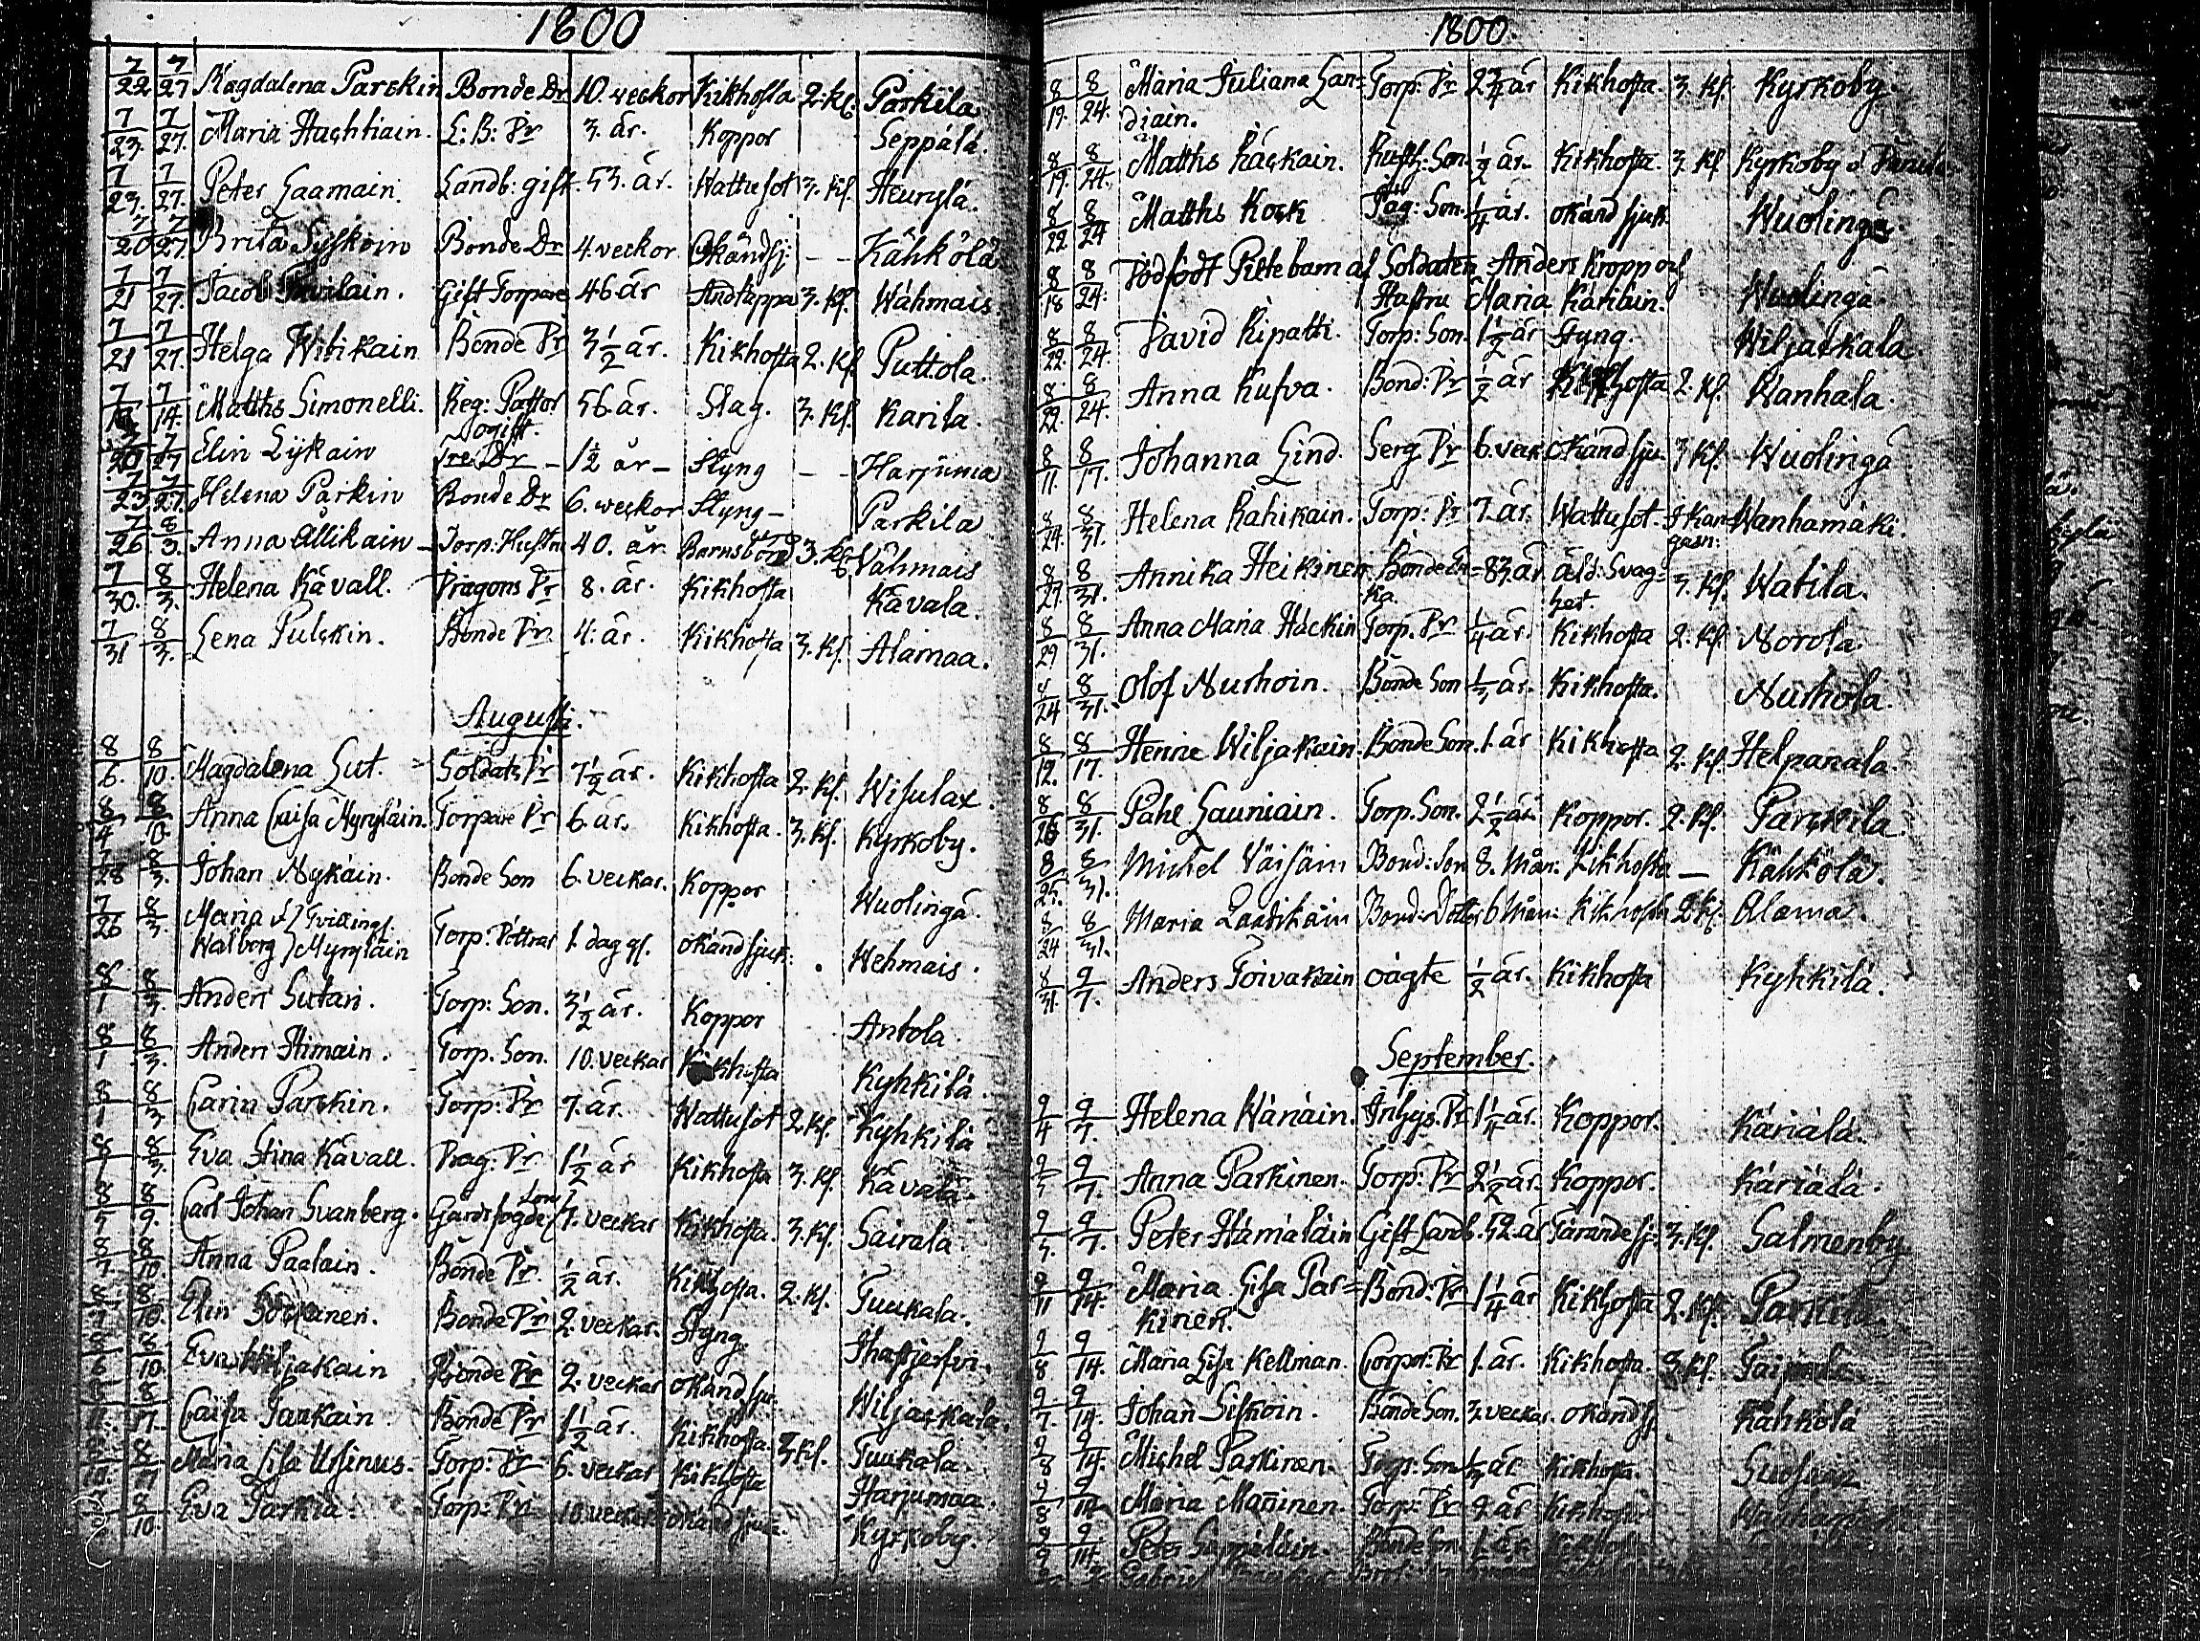 1800
7/22 7/27 Magdalena Parckin Bonde Dr 10. weckor Kikhosta 2. Kl. Parkila
7/23. 7/27. Maria Huchtiain. L: B: Dr 3. år. Koppor Seppälä.
7/23. 7/27. Peter Laamain. Landb: gift. 53. år. Wattusot 3. Kl. Heurylä.
7/20 7/27. Brita Syskoin Bonde Dr 4. veckor Okänd sj: – – Kähkölä
7/21 7/27. Jacob Gift Torpare 46 år Andtäppa 3. Kl. Wähmais.
7/21 7/27. Helga Witikain Bonde Dr 3 1/2 år. Kikhosta 2. Kl. Puttola.
7/14. Matths Simonelli. Reg: Pastor 56. år. Slag. 3. Kl. Karila.
ogift.
7/20 7/27 Elin Lÿkain Dr – 1 1/2 år – Styng – – Harjuma
7/23. 7/27. Helena Parkin Bonde Dr 6. weckor Styng – Parkila
7/26 8/3. Anna Ållikain – Torp: Hustru 40. år Barnsbörd 3. Kl. Vähmais
7/30. 8/3. Helena Kävall. Dragons Dr 8. år. Kikhosta Kävala.
7/31 8/3. Lena Pulckin. Bonde Dr. 4. år. Kikhosta 3. Kl. Alamaa.
Augusti.
8/6. 8/10. Magdalena Lut. Soldats Dr 7 1/2 år. Kikhosta 2. Kl. Wisulax.
8/4 8/10. Anna Caisa Myryläin. Torpare Dr 6. år. Kikhosta. 3. Kl. Kyrkoby.
7/28 8/3. Johan Nykäin. Bonde Son 6. veckar. Koppor Wuolingä.
7/26 8/3. Maria & } Tvillingf.
Walborg } Myryläin Torp: Döttrar 1. dag gl. okänd sjuk: Wehmais.
8/1 8/3. Anders Lutari. Torp: Son. 3 1/2 år. Koppor Antola.
8/1 8/3. Anders Himain. Torp. Son. 10. veckar Kikhosta Kyhkilä.
8/1 8/3 Carin Parckin. Torp: Dr 7. år. Wattusot 2. Kl. Kyhkilä
8/1 8/3. Eva Stina Kävall. Drag: Dr 1 1/2 år Kikhosta 3. Kl. Kävala.
8/5 8/9. Carl Johan Svanberg. Gårdsfogde Son 7. veckar Kikhosta. 3. Kl. Sairala
8/7. 8/10. Anna Paalain. Bonde Dr. 1/2 år. Kikhosta. 2. Kl. Tuukala.
8/10. Elin Bonde Dr 2. veckar. Styng
8/6 8/10. Eva Wiljakain Bonde Dr 2. veckar okänd sju. Wiljackala.
8/17. Caisa Paukain. Bonde Dr 1 1/2 år. Kikhosta. 3. Kl. Tuukala.
Maria Lisa Ursinus. Torp: Dr 6. veckar Kikhosta Harjumaa.
8/10. Eva Parkia. Torp: Dr 10. veckar okänd sjuk. Kyrkoby.
1800.
8/19. 8/24. Maria Juliana Lan= Torp: Dr 2 3/4 år Kikhosta. 3. Kl. Kyrkoby.
diain.
8/19. 8/24. Matths Räckain. Rusth: Son 1/2 år. Kikhosta. 3. Kl. Kyrkoby
8/22 8/24 Matths Kock Son. 1/4 år. okänd sjuk. Wuolingä.
8/18 8/24. Dödfödt Piltebarn af Soldaten Anders Kropp och
Hustru Maria Käriläin. Wuolingä
8/22. 8/24 David Ripatti. Torp: Son. 1 1/2 år Styng. Wiljackala.
8/22. 8/24. Anna Kufva. Bond: Dr 1/2 år Kikhosta 2. Kl. Wanhala.
8/11. 8/17. Johanna Lind. Serg Dr 6. veck: okänd sju. 3. Kl. Wuolingä
8/24. 8/31. Helena Rahikain. Torp: Dr 7. år. Wattusot. Wanhamäki.
8/27. 8/31. Annika Heikinen Bonde En= 83. år åld: Svag= 3. Kl. Watila.
ka. het.
8/29 8/31. Anna Maria Häckin Torp. Dr 1/4 år. Kikhosta 2. Kl. Norola.
8/24 8/31. Olof Nurhoin. Bonde Son 1/3 år. Kikhosta. Nurhola.
8/12. 8/17. Henric Wiljakain. Bonde Son. 1. år Kikhosta 2. Kl. Helpanala.
8/26 8/31. Påhl Launiain. Torp. Son. 2 1/2 år. Koppor. 2. Kl. Parckila
8/25. 8/31. Michel Väisäin Bond: Son 8. Mån: Kikhosta — Kähkölä.
8/24 8/31. Maria Lautikäin Bond: Dotter 6 Mån: Kikhosta 2 Kl. Alamaa.
8/31. 9/7. Anders Toivakain oägte 1/2 år. Kikhosta Kyhkilä.
September.
9/4 9/7. Helena Wänäin. Inhys. Dr 1 1/4 år. Koppor. Käriälä.
9/7. Anna Parkinen. Torp: Dr 2 1/2 år. Koppor. Käriälä.
9/7. Peter Hämäläin Gift Landb. 52. år Tärande sj: 3. Kl. Salmenby
9/11 9/14. Maria Lisa Par= Bond: Dr 1 1/4 år Kikhosta 2. Kl. Parkila.
kinen.
9/8 9/14. Maria Lisa Kellman. Corpor: Dr 1. år. Kikhosta. 3. Kl.
9/7. 9/14. Johan Siskoin. Bonde Son. 3. veckar. okänd sj. Kähkölä
9/8 9/14. Michel Parkinen. Torp: Son år Kikhosta.
9/8 9/14 Maria Manninen. Torp: Dr 2. år Kikhosta
9/9 9/14. Peter Seppäläin. Bonde Son. 1. år.
Gabriel